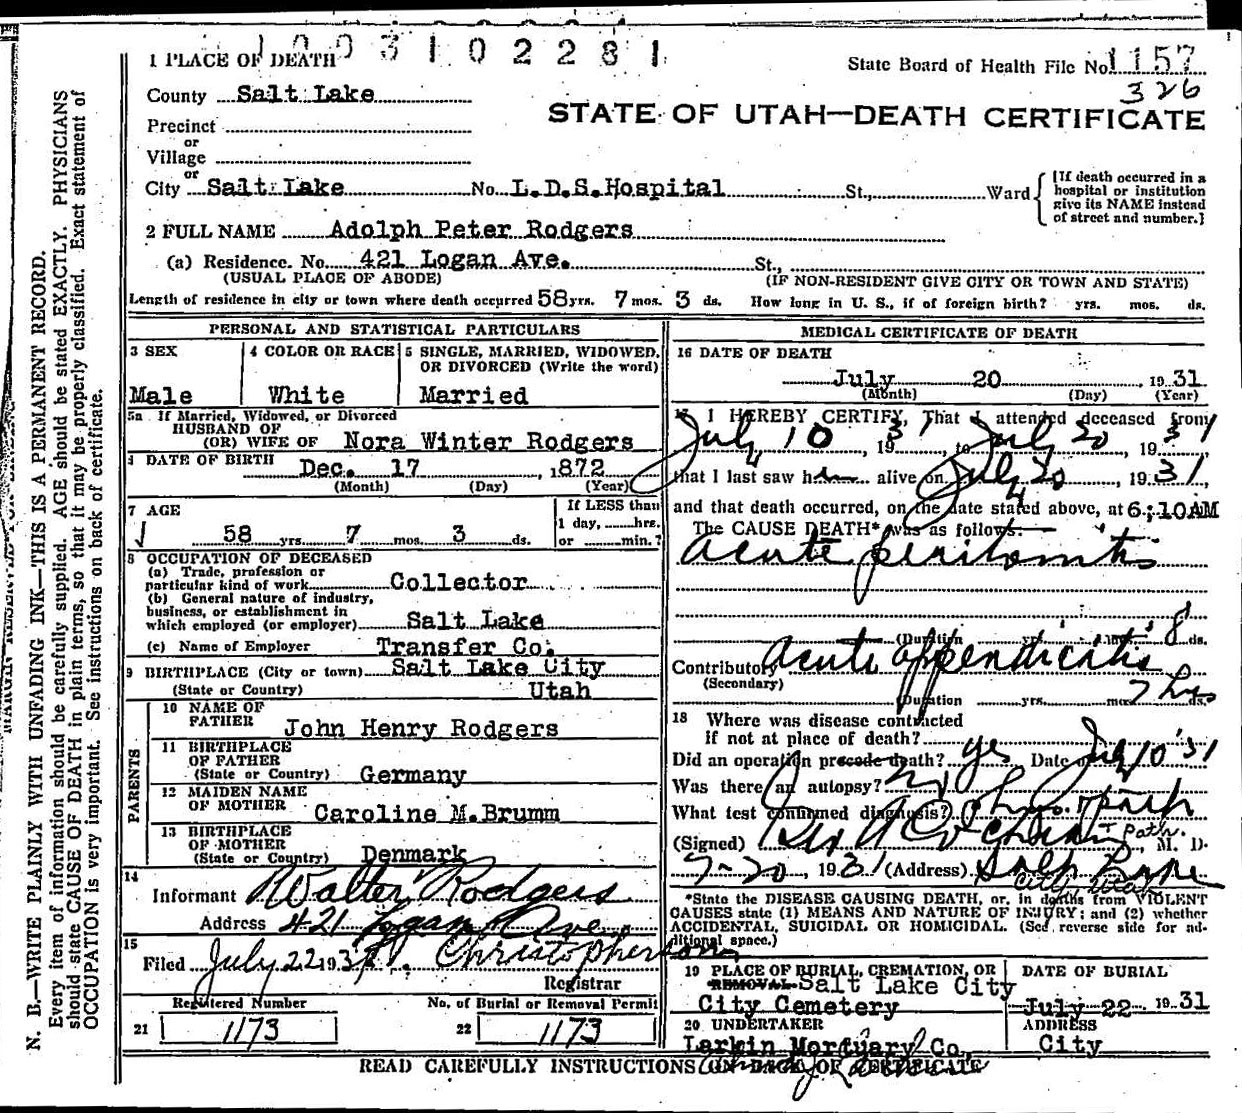 1003102281
1 PLACE OF DEATH
State Board of Health File No. 1157
326
County Salt Lake
STATE OF UTAH—DEATH CERTIFICATE
Precinct
or
Village
or
City Salt Lake No. L.D.S.Hospital St., Ward
[If death occurred in a
hospital or institution
give its NAME instead
of street and number.]
2 FULL NAME Adolph Peter Rodgers
(a) Residence. No. 421 Logan Ave. St.,
(USUAL PLACE OF ABODE) (IF NON-RESIDENT GIVE CITY OR TOWN AND STATE)
Length of residence in city or town where death occurred 58 yrs. 7 mos. 3 ds. How long in U. S., if of foreign birth? yrs. mos. ds.
PERSONAL AND STATISTICAL PARTICULARS
3 SEX
Male
4 COLOR OR RACE
White
5 SINGLE, MARRIED, WIDOWED,
OR DIVORCED (Write the word)
Married
5a If Married, Widowed, or Divorced
HUSBAND OF
(OR) WIFE OF Nora Winter Rodgers
DATE OF BIRTH
Dec. 17, 1872
(Month) (Day) (Year)
7 AGE
58 yrs. 7 mos. 3 ds.
If LESS than
1 day, hrs.
or min.?
8 OCCUPATION OF DECEASED
(a) Trade, profession or
particular kind of work Collector
(b) General nature of industry,
business, or establishment in
which employed (or employer) Salt Lake
(c) Name of Employer Transfer Co.
9 BIRTHPLACE (City or town) Salt Lake City
(State or Country) Utah
PARENTS
10 NAME OF
FATHER John Henry Rodgers
11 BIRTHPLACE
OF FATHER
(State or Country) Germany
12 MAIDEN NAME
OF MOTHER Caroline M.Brumm
13 BIRTHPLACE
OF MOTHER
(State or Country) Denmark
14
Informant Walter Rodgers
Address 421 Logan Ave.
15
Filed July 22 1931 Christopherson
Registrar
Registered Number
21 1173
No. of Burial or Removal Permit
22 1173
MEDICAL CERTIFICATE OF DEATH
16 DATE OF DEATH
July 20, 1931
(Month) (Day) (Year)
17 I HEREBY CERTIFY, That I attended deceased from
July 10, 1931 to July 20, 1931
that I last saw him alive on July 20, 1931,
and that death occurred, on the date stated above, at 6:10AM
The CAUSE DEATH* was as follows:
Acute peritonitis
(Duration yrs. mos. 8 ds.
Contributory Acute appendicitis
(Secondary)
(Duration yrs. mos. ds.
18 Where was disease contracted
if not at place of death?
Did an operation precede death? yes Date July 10 '31
Was there an autopsy? no
What test confirmed diagnosis?
(Signed) M. D.
7-20, 1931 (Address) Salt Lake
City, Utah
*State the DISEASE CAUSING DEATH, or, in deaths from VIOLENT
CAUSES state (1) MEANS AND NATURE OF INJURY; and (2) whether
ACCIDENTAL, SUICIDAL OR HOMICIDAL. (See reverse side for ad-
ditional space.)
19 PLACE OF BURIAL, CREMATION, OR
REMOVAL Salt Lake City
City Cemetery
DATE OF BURIAL
July 22 1931
20 UNDERTAKER
Larkin Mortuary Co.
ADDRESS
City
READ CAREFULLY INSTRUCTIONS ON BACK OF CERTIFICATE
N. B.—WRITE PLAINLY WITH UNFADING INK—THIS IS A PERMANENT RECORD.
Every item of information should be carefully supplied. AGE should be stated EXACTLY. PHYSICIANS
should state CAUSE OF DEATH in plain terms, so that it may be properly classified. Exact statement of
OCCUPATION is very important. See instructions on back of certificate.